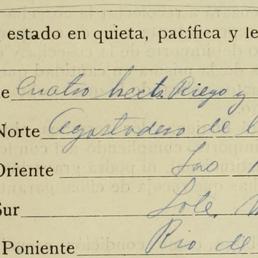 estado en quieta, pacífica y le
e Cuatro hects. Riego y
Norte Agostadero de l
Oriente Las
Sur Lote
Poniente Rio de